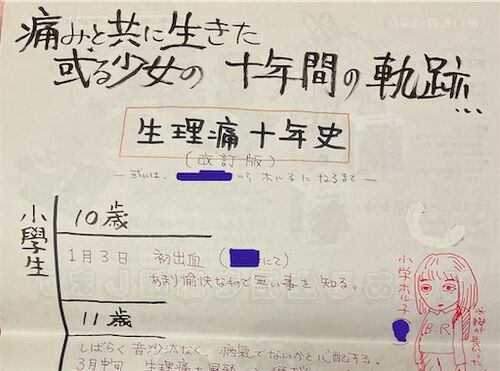 痛みと共に生きた
或る少女の 十年間の軌跡…
生理痛十年史
(改訂版)
― 或いは、 から ホル子になるまで ―
小學生
10歳
1月3日 初出血 ( にて)
あまり愉快なもので無い事を知る。
11歳
しばらく音沙汰なく、病気でないかと心配する。
3月中旬 生理痛
小学ホル子
B.R